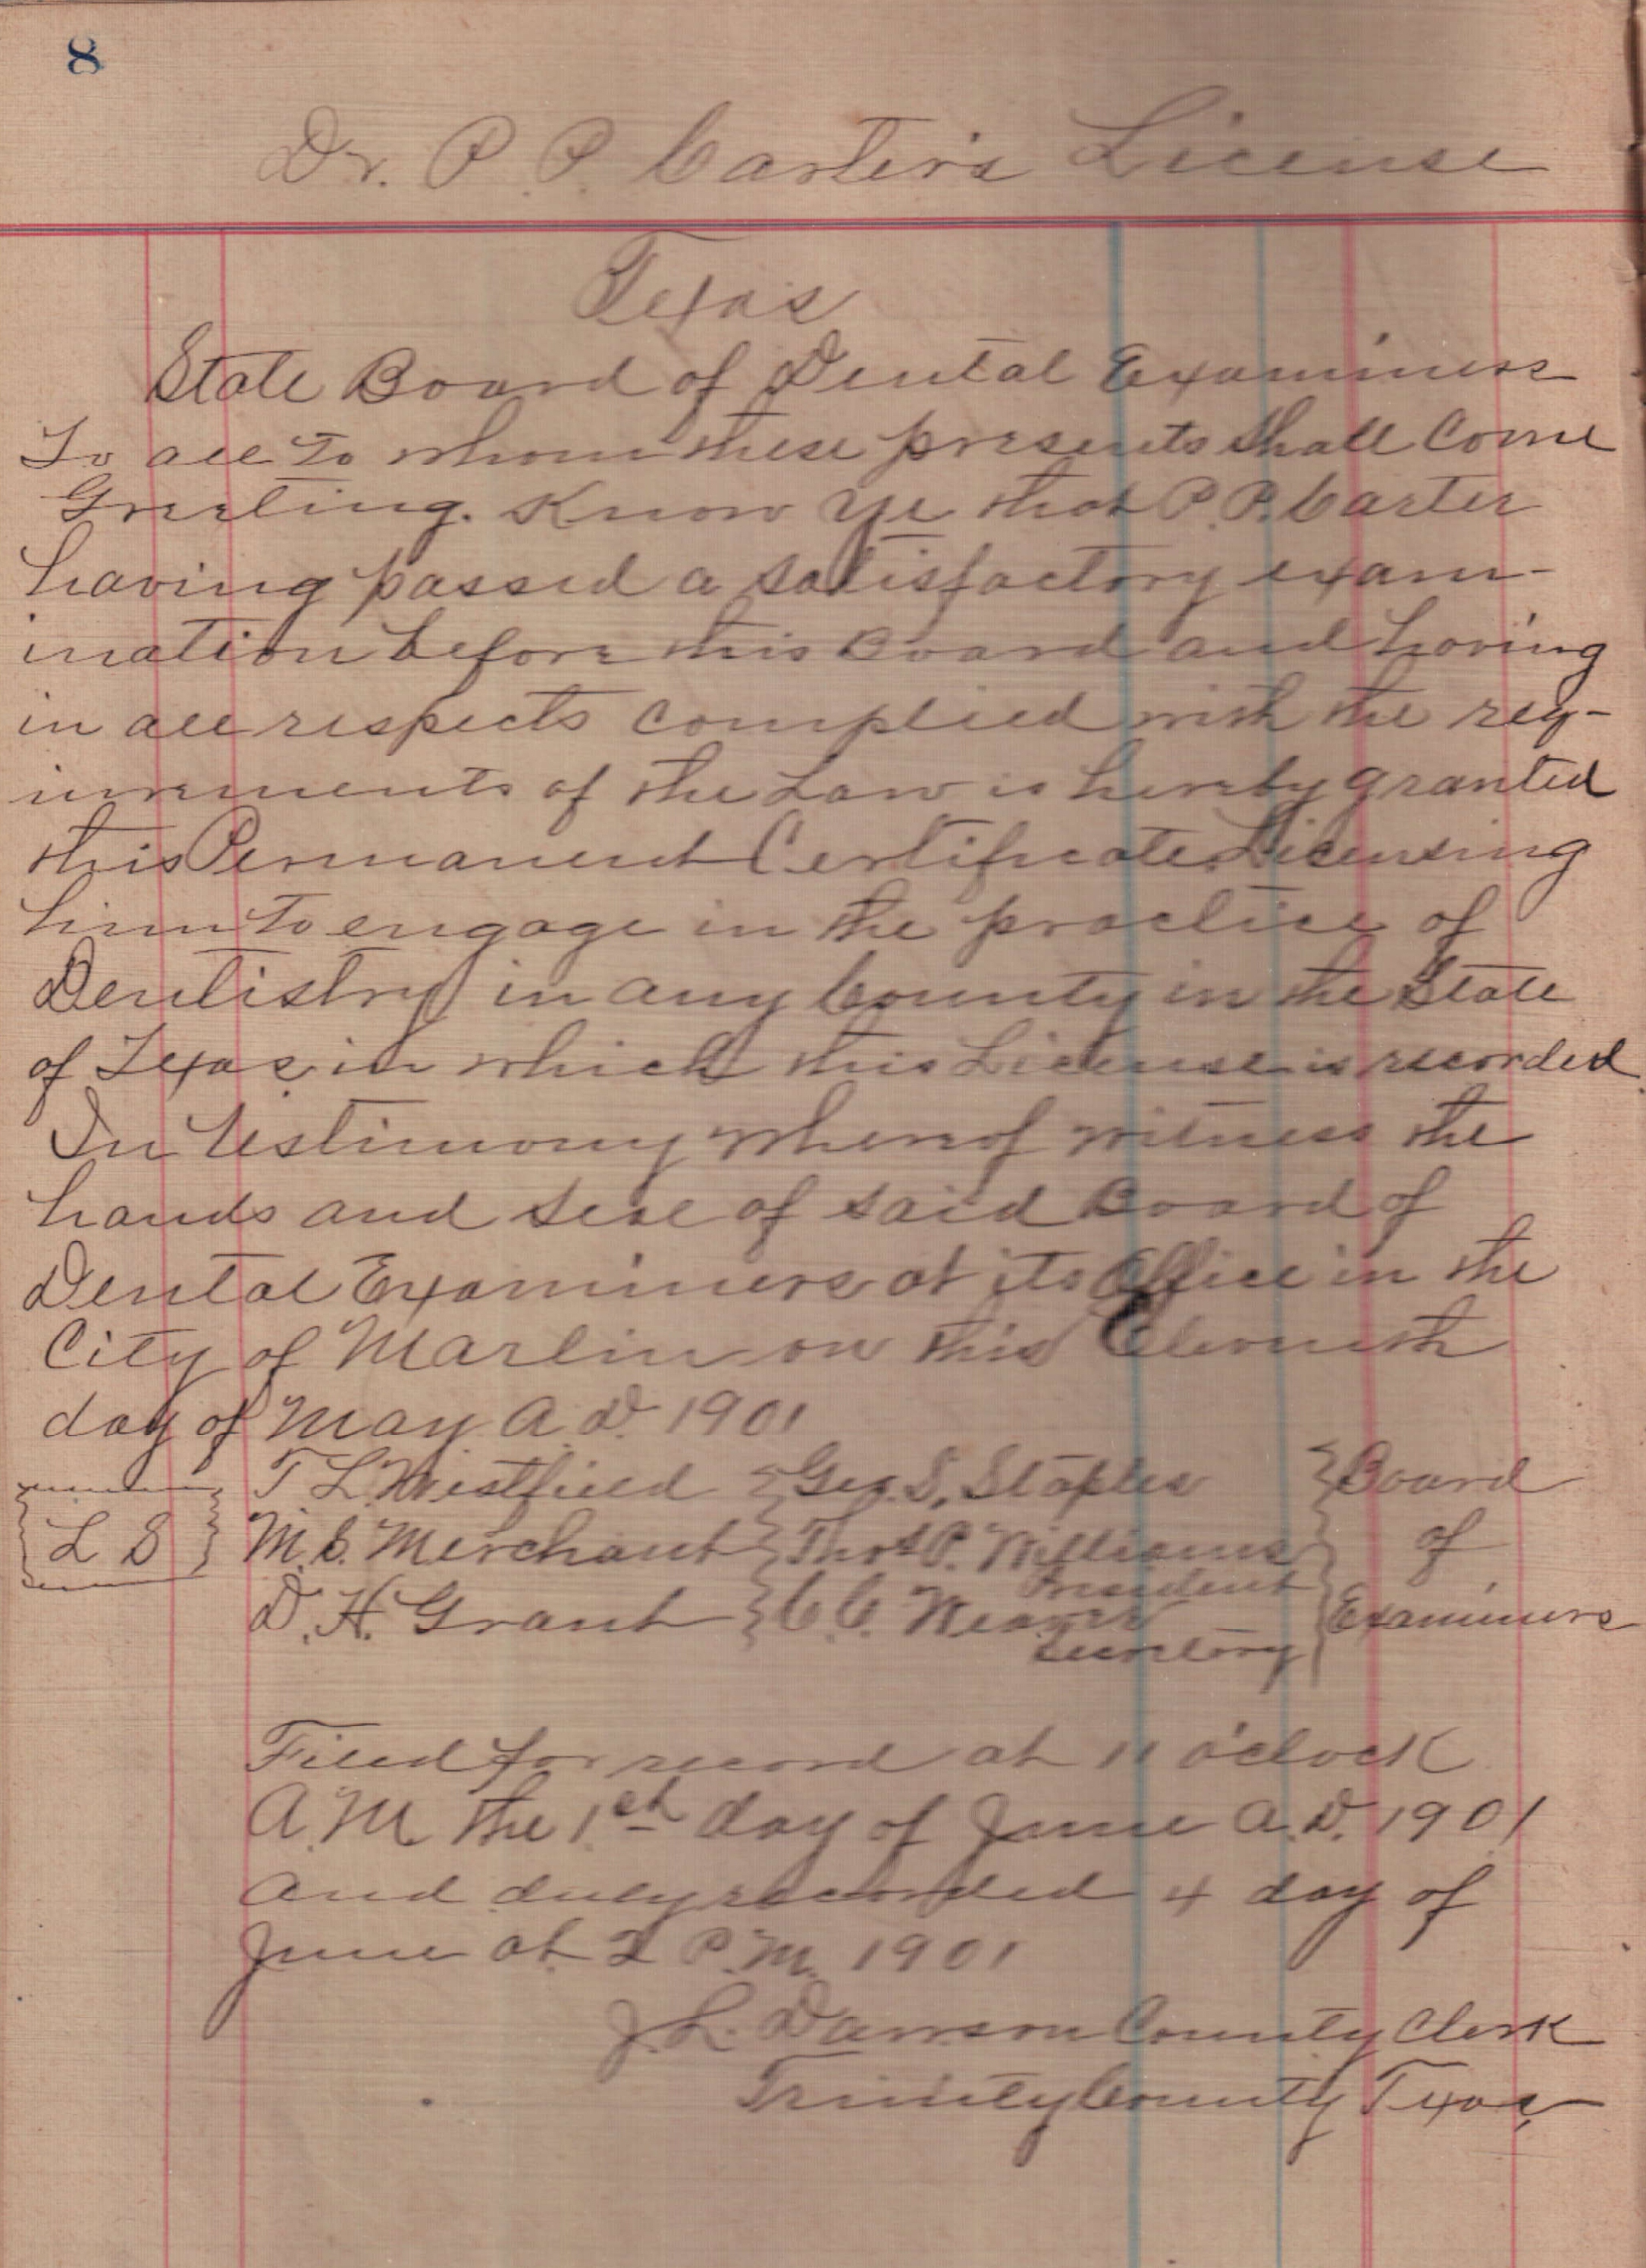 8
Dr. P. P. Carter's License
Texas
State Board of Dental Examiners
To all to whom these presents shall Come
Greeting. Know ye that P. P. Carter
having passed a satisfactory exam-
ination before this Board and having
in all respects complied with the req-
uirements of the Law is hereby granted
this Permanent Certificate Licensing
him to engage in the practice of
Dentistry in any County in the State
of Texas in which this License is recorded.
In testimony whereof witness the
hands and seal of said Board of
Dental Examiners at its Office in the
City of Marlin on this Eleventh
day of May A. D. 1901
T L. Westfield } Geo. S. Staples } Board
L S } M. S. Merchant } Thos P. Williams } of
President
D. H. Grant } C. C. Weaver } Examiners
Secretary
Filed for record at 11 o'clock
A. M the 1st day of June A. D. 1901
and duly recorded 4 day of
June at 2 P. M. 1901
J. L. Dawson County Clerk
Trinity County Texas